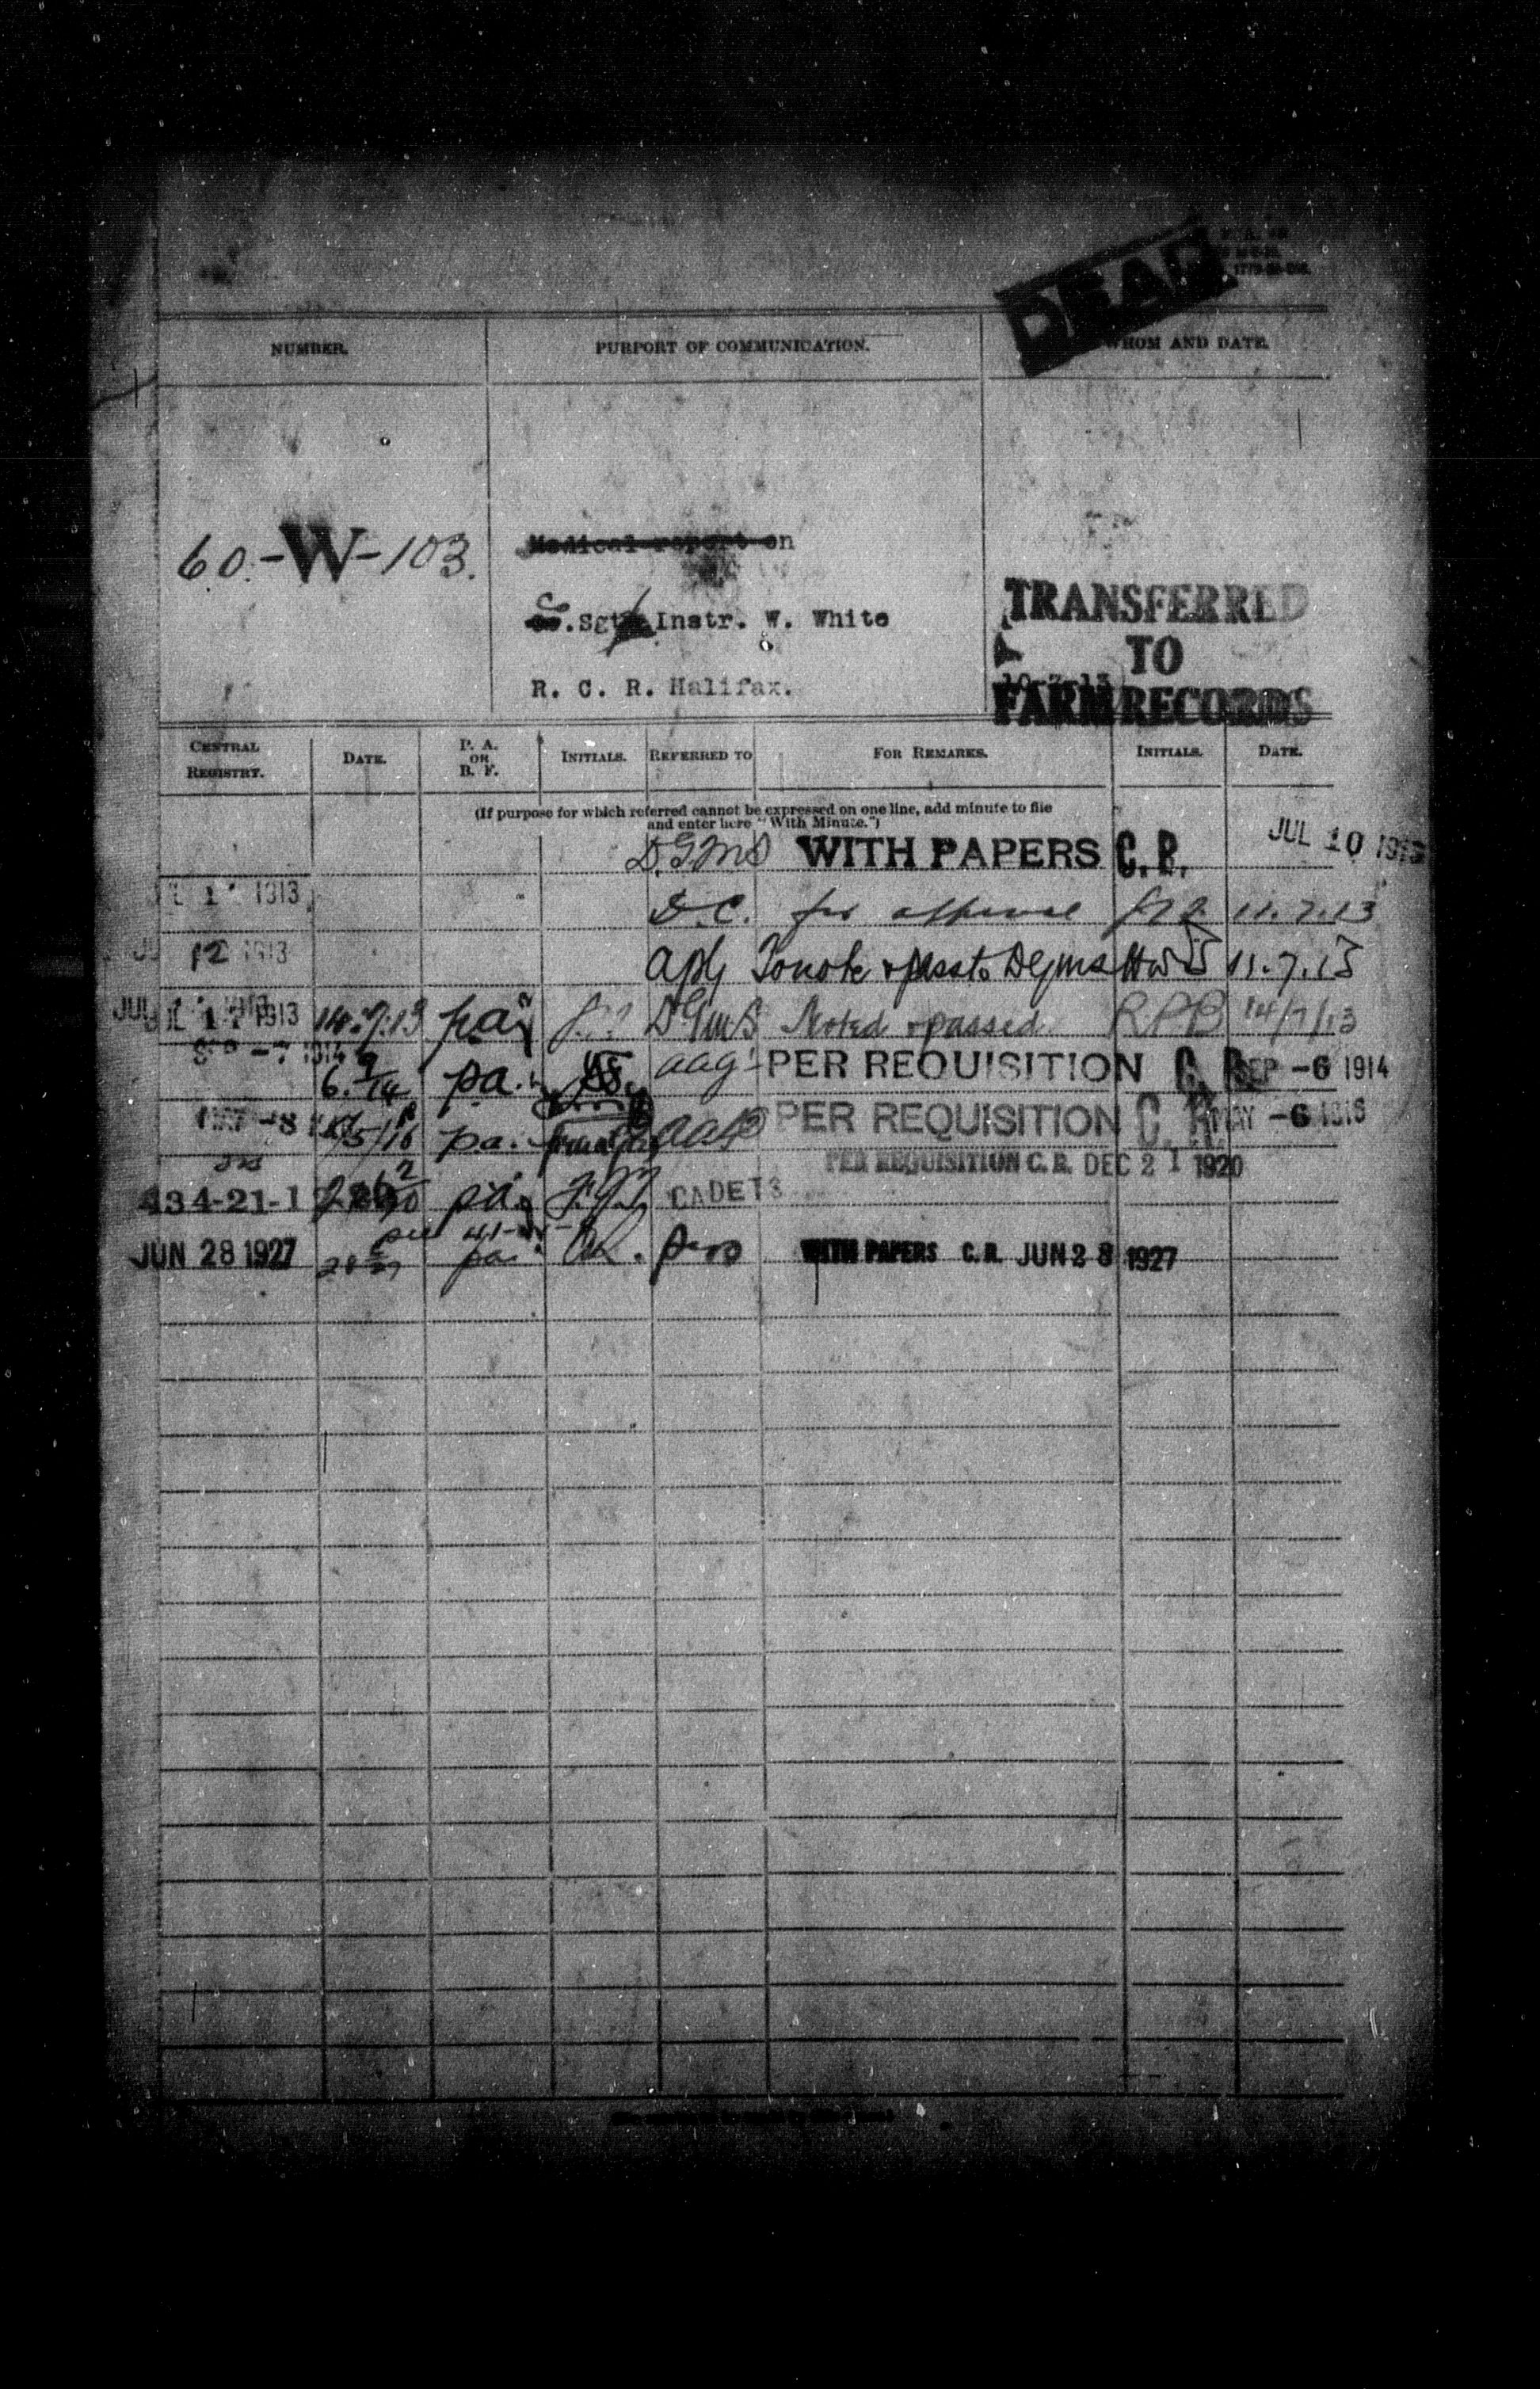 DEAD
NUMBER.
PURPORT OF COMMUNICATION.
WHOM AND DATE.
60.-W-103.
Medical report on
Sgt Instr. W. White
R. C. R. Halifax.
TRANSFERRED
TO
10-7-13
FARM RECORDS
CENTRAL REGISTRY.
DATE.
P. A. OR B. F.
INITIALS.
REFERRED TO
FOR REMARKS.
INITIALS.
DATE.
(If purpose for which referred cannot be expressed on one line, add minute to file
and enter here "With Minute.")
D.G.M.S WITH PAPERS C.R. JUL 10 1913
1913 D.C. for approval 11.7.13
12 1913 to note & pass to Dgms 11.7.13
JUL 1913 14.7.13 pa DGMS Noted & passed RPB 14/7/13
SEP -7 1914 pa. aag PER REQUISITION C.R. SEP -6 1914
-8 pa. PER REQUISITION C.R. MAY -6 1916
PER REQUISITION C.R. DEC 21 1920
434-21-1 pa CADETS
JUN 28 1927 pa WITH PAPERS C.R. JUN 28 1927